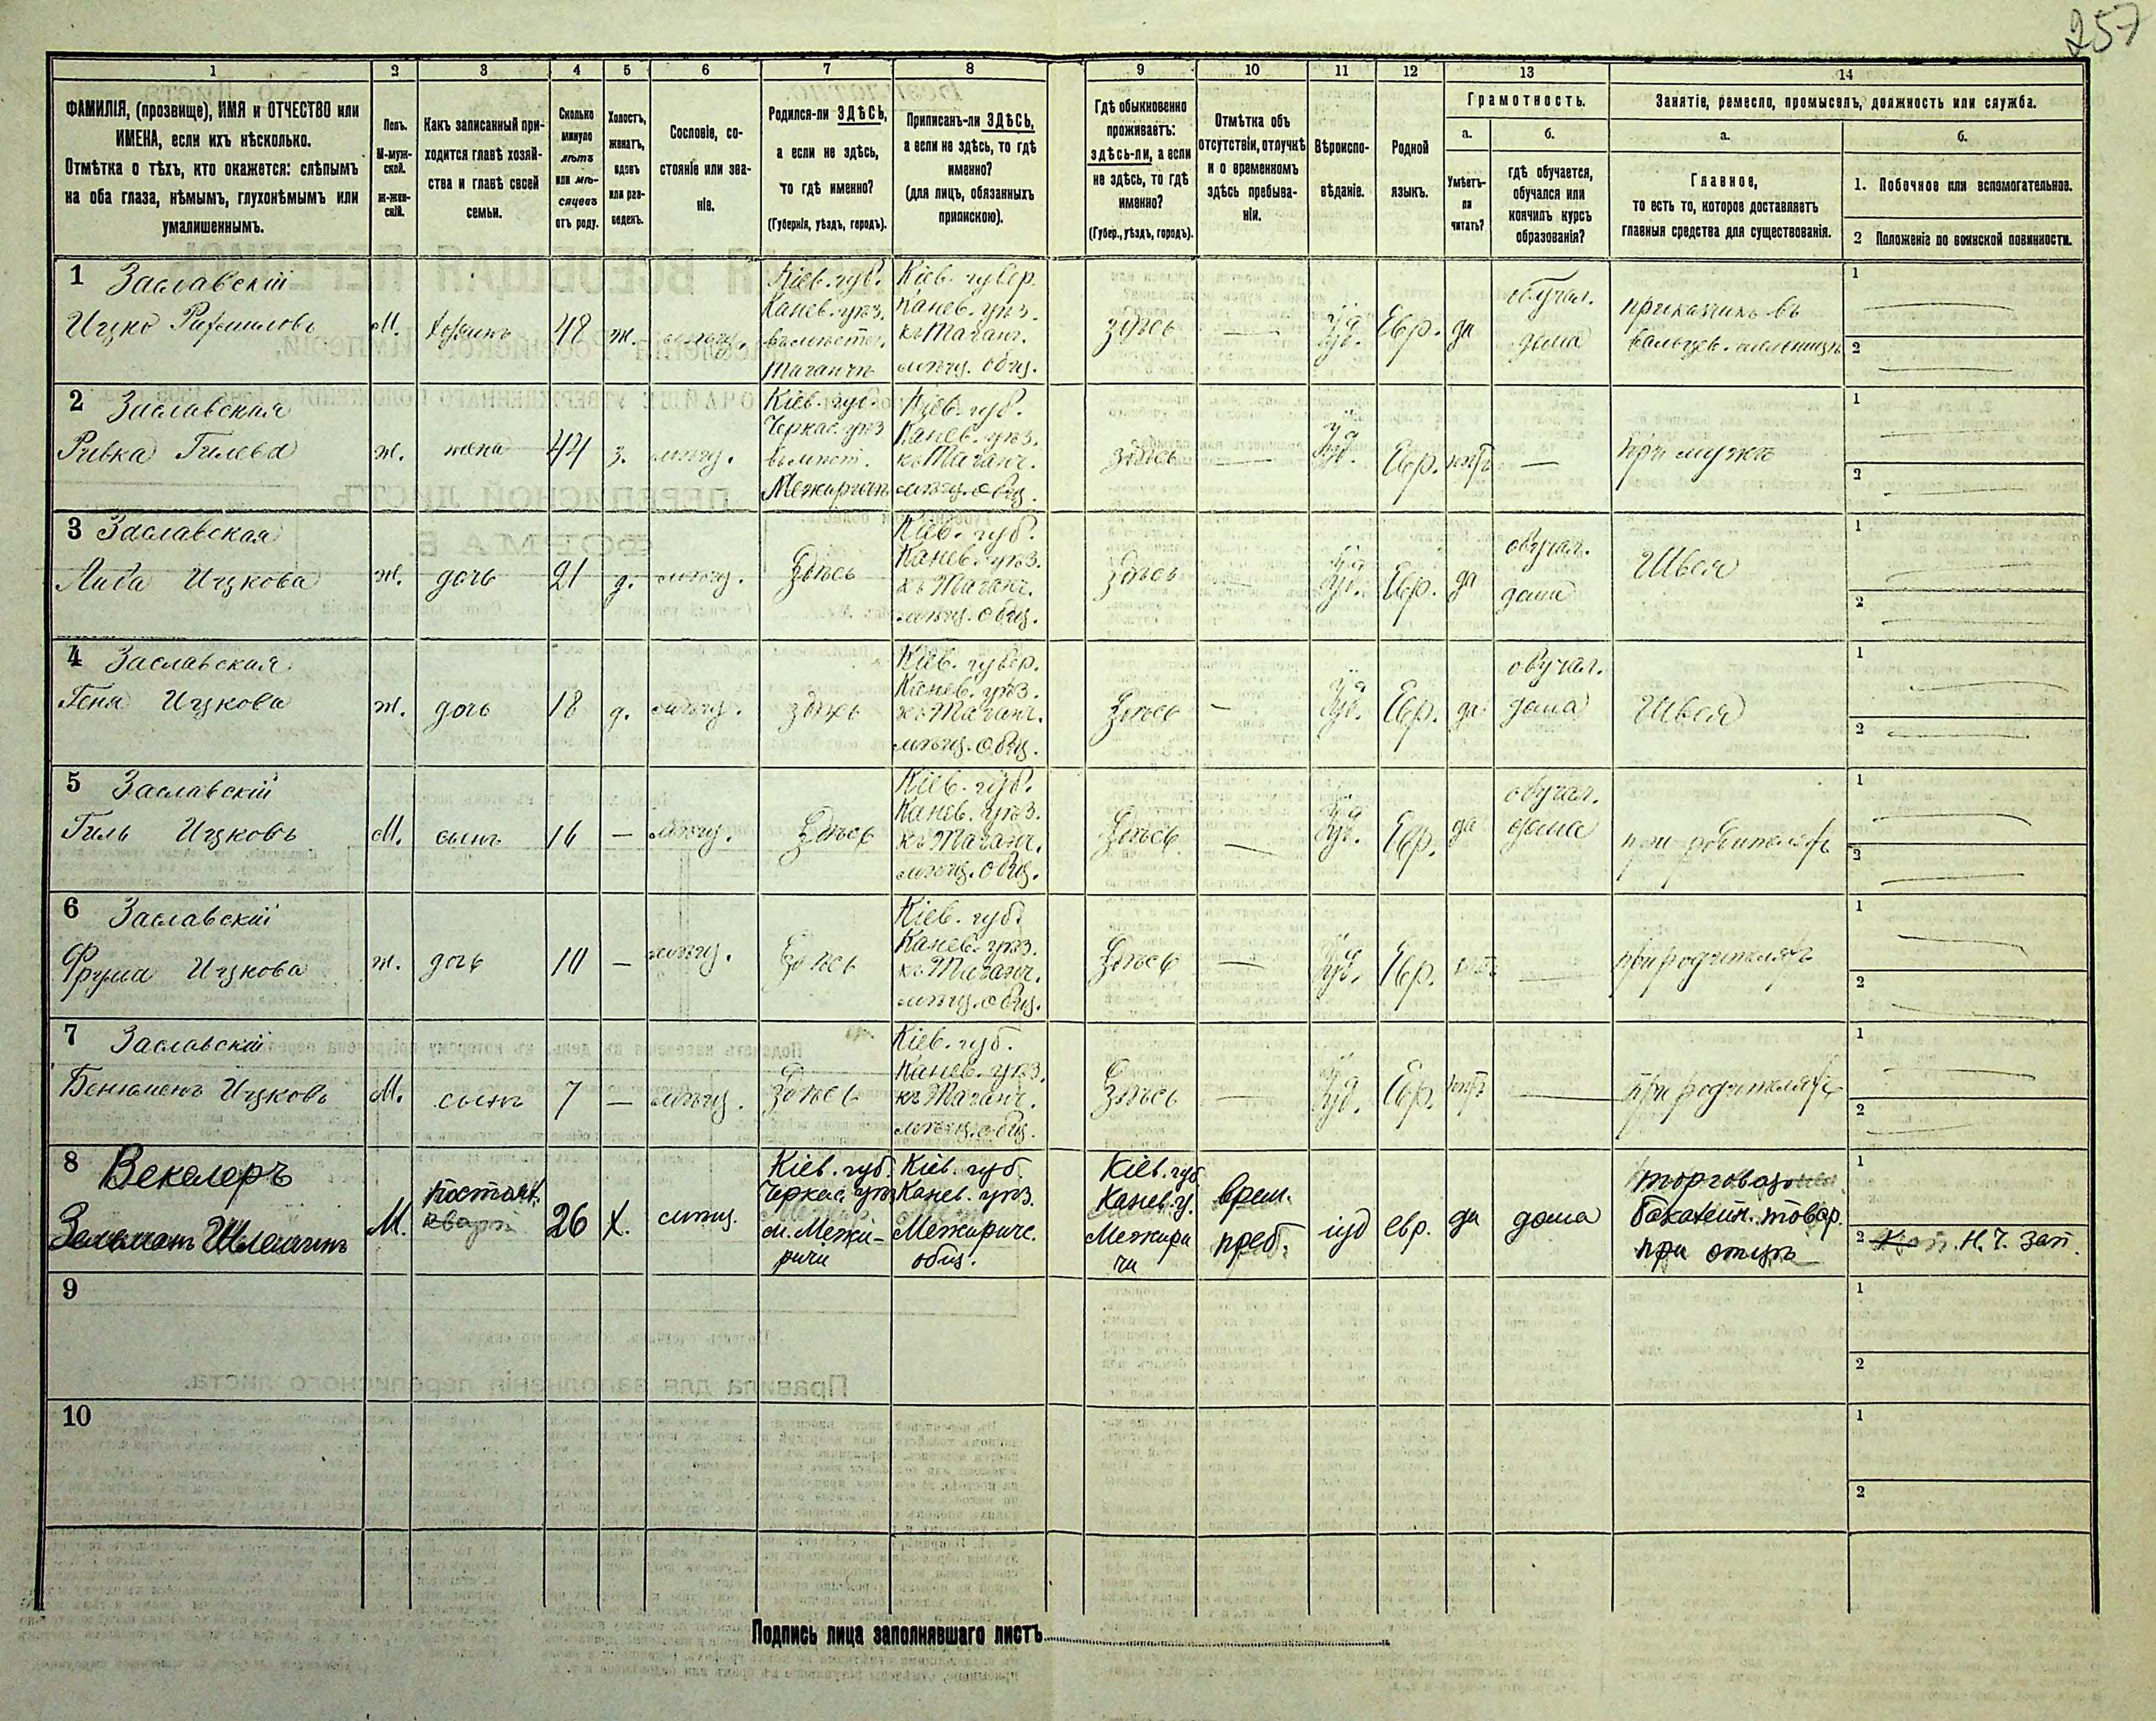 257
1 2 3 4 5 6 7 8 9 10 11 12 13 14
ФАМИЛІЯ, (прозвище), ИМЯ и ОТЧЕСТВО или
ИМЕНА, если ихъ нѣсколько.
Отмѣтка о тѣхъ, кто окажется: слѣпымъ
на оба глаза, нѣмымъ, глухонѣмымъ или
умалишеннымъ.
Полъ.
М-муж-
ской.
ж-жен-
скій.
Какъ записанный при-
ходится главѣ хозяй-
ства и главѣ своей
семьи.
Сколько
минуло
лѣтъ
или мѣ-
сяцевъ
отъ роду.
Холостъ,
женатъ,
вдовъ
или раз-
веденъ.
Сословіе, со-
стояніе или зва-
ніе.
Родился-ли ЗДѢСЬ,
а если не здѣсь,
то гдѣ именно?
(Губернія, уѣздъ, городъ).
Приписанъ-ли ЗДѢСЬ,
а если не здѣсь, то гдѣ
именно?
(для лицъ, обязанныхъ
припискою).
Гдѣ обыкновенно
проживаетъ:
здѣсь-ли, а если
не здѣсь, то гдѣ
именно?
(Губер., уѣздъ, городъ).
Отмѣтка объ
отсутствіи, отлучкѣ
и о временномъ
здѣсь пребыва-
ніи.
Вѣроиспо-
вѣданіе.
Родной
языкъ.
Грамотность.
а.
Умѣетъ-
ли
читать?
б.
гдѣ обучается,
обучался или
кончилъ курсъ
образованія?
Занятіе, ремесло, промыселъ, должность или служба.
а.
Главное,
то есть то, которое доставляетъ
главныя средства для существованія.
б.
1. Побочное или вспомогательное.
2 Положеніе по воинской повинности.
1 Заславскій
Ицко
М.
хозяинъ
48
ж.
мѣщ.
Кіев. губ.
Канев. уѣз.
въ мѣст.
Таганчѣ
Кіев. губер.
Канев. уѣз.
къ Таганч.
мѣщ. общ.
здѣсь
—
Іуд.
Евр.
да
обучал.
дома
прикащикъ въ
вальцев. мельницѣ
1
2
2 Заславская
Ривка Гилева
ж.
жена
44
з.
мѣщ.
Кіев. губ.
Черкас. уѣз
въ мѣст.
Межиричѣ
Кіев. губ.
Канев. уѣз.
къ Таганч.
мѣщ. общ.
здѣсь
—
Іуд.
Евр.
нѣтъ
—
при мужѣ
1
2
3 Заславская
Либа Ицкова
ж.
дочь
21
д.
мѣщ.
Здѣсь
Кіев. губ.
Канев. уѣз.
къ Таганч.
мѣщ. общ.
здѣсь
—
Іуд.
Евр.
да
обучал.
дома
Швея
1
2
4 Заславская
Геня Ицкова
ж.
дочь
18
д.
мѣщ.
здѣсь
Кіев. губер.
Канев. уѣз.
къ Таганч.
мѣщ. общ.
Здѣсь
—
Іуд.
Евр.
да
обучал.
дома
Швея
1
2
5 Заславскій
Гиль Ицковъ
М.
сынъ
16
—
мѣщ.
Здѣсь
Кіев. губ.
Канев. уѣз.
къ Таганч.
мѣщ. общ.
Здѣсь
—
Іуд.
Евр.
да
обучал.
дома
при родителяхъ
1
2
6 Заславскій
Фрума Ицкова
ж.
дочь
10
—
мѣщ.
Здѣсь
Кіев. губ.
Канев. уѣз.
къ Таганч.
мѣщ. общ.
Здѣсь
—
Іуд.
Евр.
нѣтъ
—
при родителяхъ
1
2
7 Заславскій
Бенюменъ Ицковъ
М.
сынъ
7
—
мѣщ.
Здѣсь
Кіев. губ.
Канев. уѣз.
къ Таганч.
мѣщ. общ.
Здѣсь
—
Іуд.
Евр.
нѣтъ
—
при родителяхъ
1
2
8 Векслеръ
М.
26
Х.
мѣщ.
Кіев. губ
Черкас. уѣз
м. Межи-
ричи
Кіев. губ.
Канев. уѣз.
Межириче.
общ.
Кіев. губ
Канев. у.
Межири
чи
врем.
преб.
іуд
евр.
да
дома
бакалейн. товар.
при отцѣ
1
2 Н. Ч. Зап.
9
1
2
10
1
2
Подпись лица заполнявшаго листъ